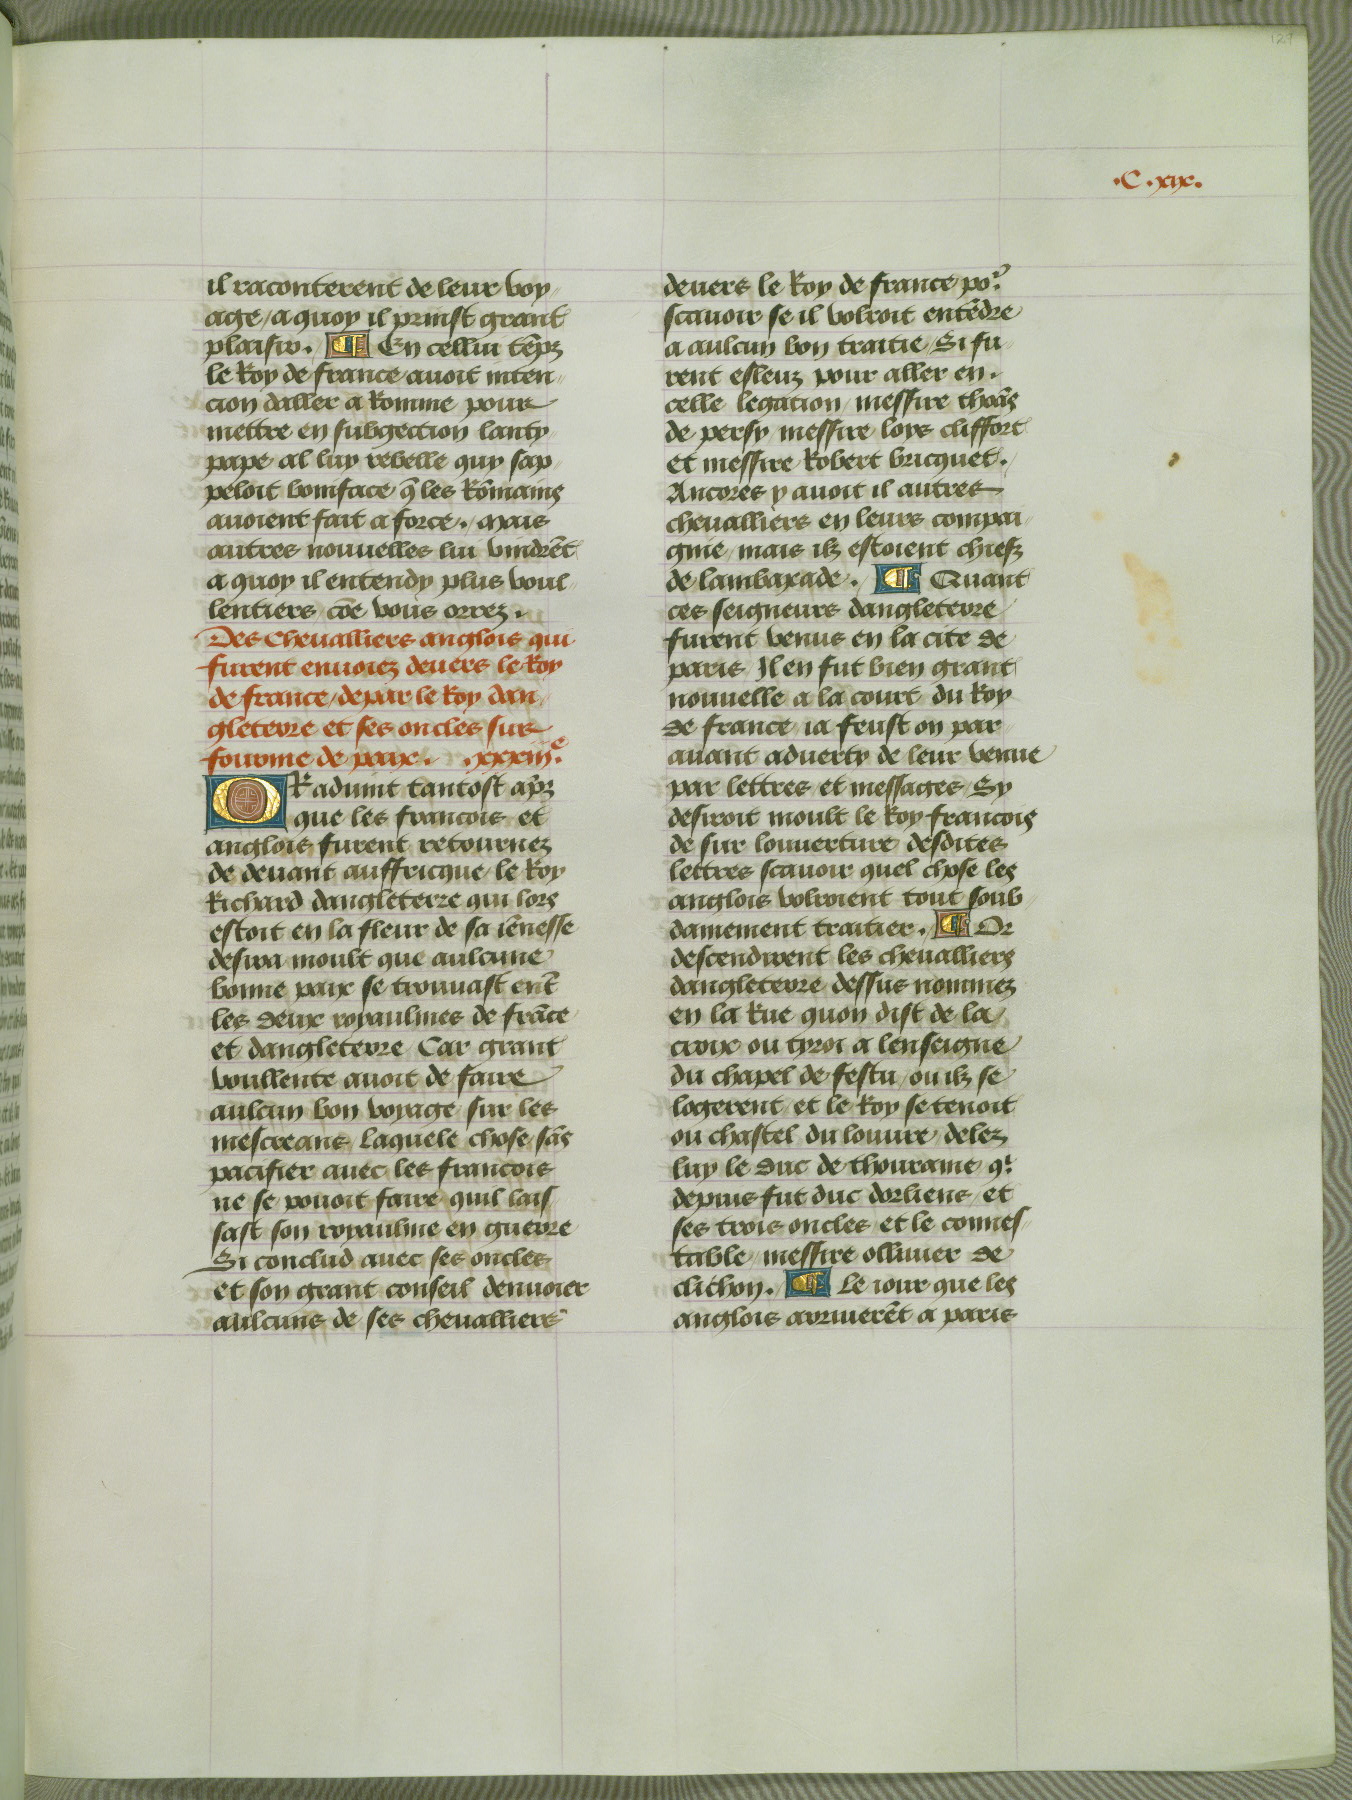 127
.C.xix.
il raconterent de leur voy-
age / a quoy il prinst grant
plaisir. ¶ En cellui tēpz
le Roy de france auoit inten-
cion daller a Romme pour
mettre en subgection lanty-
pape al luy rebelle quy sap-
peloit boniface q̄ les Rōmains
auoient fait a force. Mais
autres nouuelles lui vindrēt
a quoy il entendy plus voul-
lentiers cōe vous orrez.
Des Cheualliers anglois qui
furent enuoiez deuers le Roy
de france / de par le Roy dan-
gleterre et ses oncles sur
fourme de paix. .xxxiiie.
ORaduint tantost apz
que les francois et
anglois furent retournez
de deuant auffricque / le Roy
Richard dangleterre qui lors
estoit en la fleur de sa iēnesse
desira moult que aulcune
bonne paix se trouuast ent̄
les deux royaulmes de frāce
et dangleterre Car grant
voullente auoit de faire
aulcun bon voyage sur les
mescreans Laquele chose sās
pacifier auec les francois
ne se pouoit faire quil lais-
sast son royaulme en guerre
Si conclud auec ses oncles
et son grant conseil denuoier
aulcuns de ses cheualliers
deuers le Roy de france po'
scauoir se il volroit entēdre
a aulcun bon traitie Si fu-
rent esleuz pour aller en.
celle legation messire thoās
de persy messire loys cliffort
et messire Robert bricquet.
Ancores y auoit il autres
cheualliers en leurs compai-
gnie / mais ilz estoient chiefz
de lambaxade. ¶ Quant
ces seigneurs dangleterre
furent venus en la cite de
paris Il en fut bien grant
nouuelle a la court du Roy
de france ia feust on par
auant aduerty de leur venue
par lettres et messages Sy
desiroit moult le Roy francois
de sur louuerture desdites
lettres scauoir quel chose les
anglois volroient tout soub-
damement traitier. ¶ Or
descendirent les cheualliers
dangleterre dessus nommez
en la Rue quon dist de la
croix ou tyroi a lenseigne
du chapel de festu / ou ilz se
logerent et le Roy se tenoit
ou chastel du louure delez
luy le duc de thouraine qi
depuis fut duc dorliens / et
ses trois oncles et le connes-
table messire olliuier de
clichon. ¶ Le iour que les
anglois arriuerēt a paris